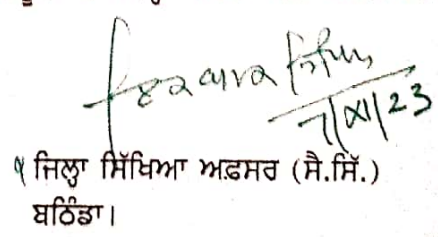 7/XI/23
ਜਿਲ੍ਹਾ ਸਿੱਖਿਆ ਅਫ਼ਸਰ (ਸੈ.ਸਿੱ.)
ਬਠਿੰਡਾ।